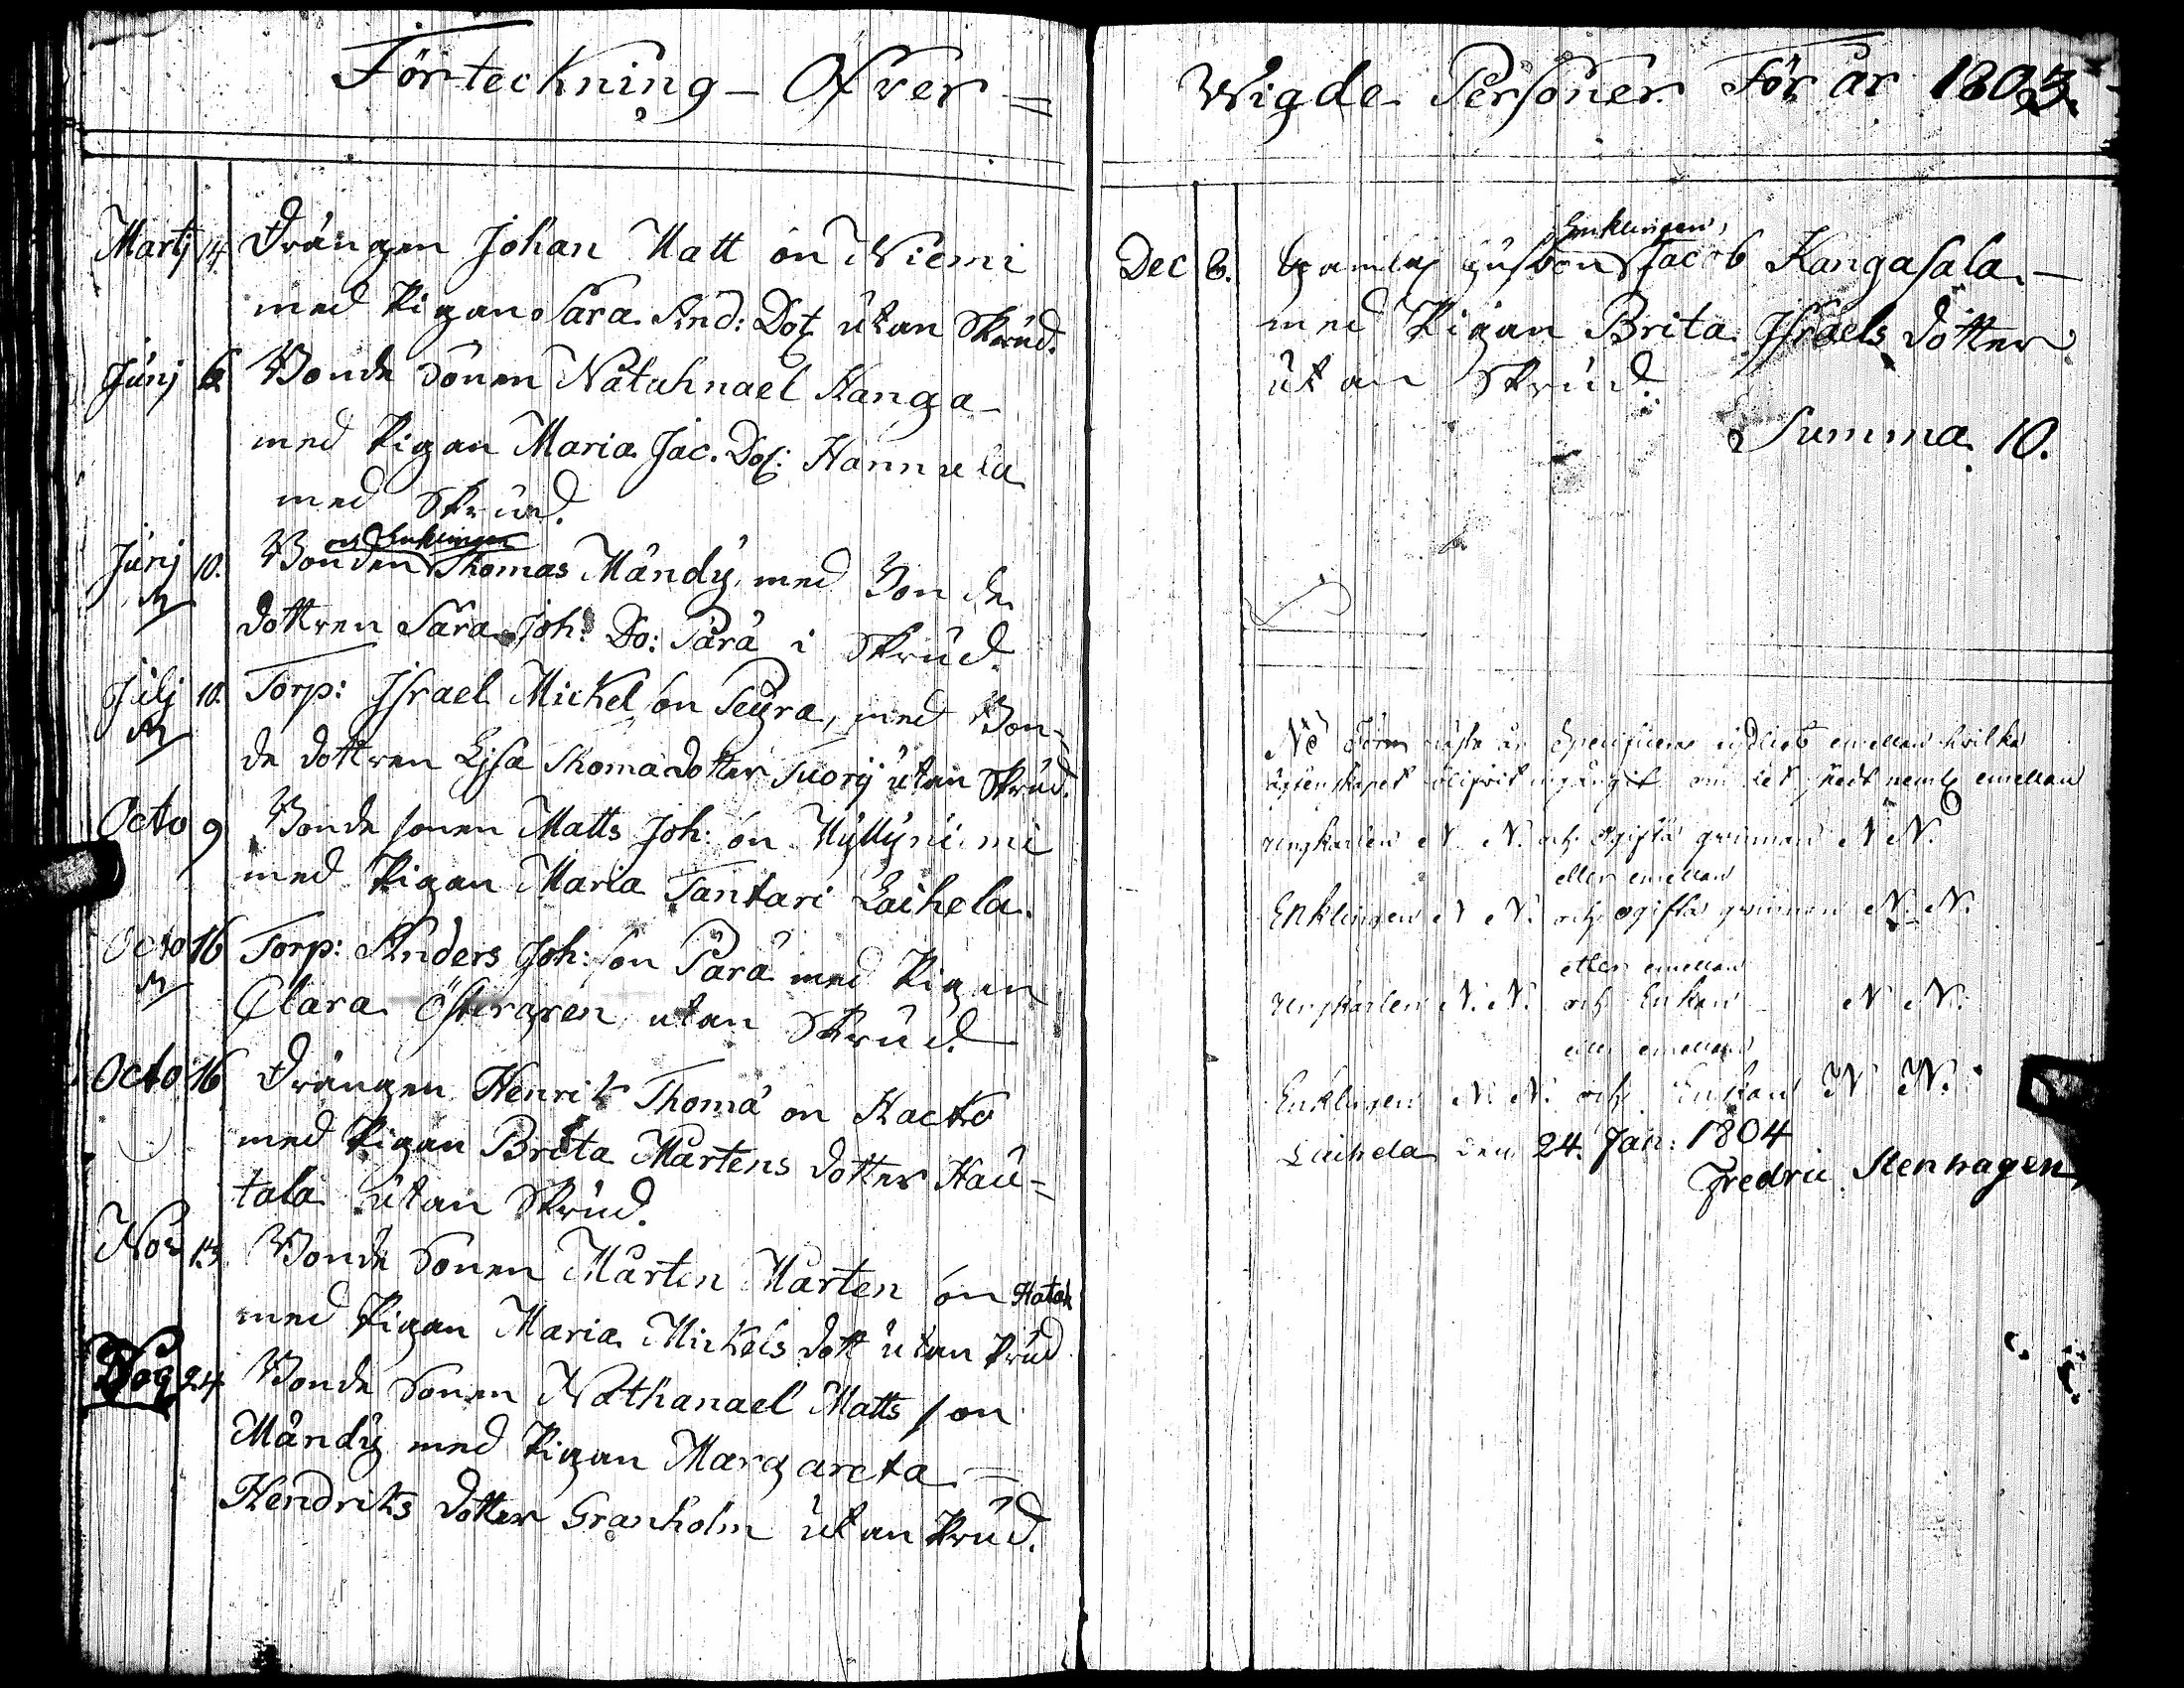 Förteckning – Öfver =
Martj 14. Drängen Johan Matt ón Niemi
med Pigan Sara And: Dot utan Skrud.
Junj 6 Bonde Sonen Natahnael Kanga
med Pigan Maria Jac. Dot: Hannula
med Skrud.
och Enklingen
Junj 10. Bonden Thomas Mändy, med Bonde
dottren Sara Joh: Do: Pärä i Skrud.
Julj 10. Torp: Israel Mickel són Peura, med Bon-
de dottren Lisa Thomadotter Tuorij utan Skrud.
Octo 9 Bonde sonen Matts Joh: ón Myllyniemi
med Pigan Maria Tantari Laihela.
Octo 16 Torp: Anders Joh: son Pärä med Pigan
Clara Östergren utan Skrud.
Octo 16 Drängen Henrik Thoma ón Kacko
med Pigan Brita Mårtens dotter Hau=
tala utan Skrud.
Nov 13 Bonde Sonen Mårten Mårten ón
med Pigan Maria Mickels dott utan skrud
24 Bonde Sonen Nathanael Matts son
Mändy med Pigan Margareta –
Hendriks dotter Granholm utan skrud.
Wigde Personer För år 1803.
Enklingen,
Dec 6. Jacob Kangasala –
med Pigan Brita Israels dotter
utan Skrud.
Summa 10.
emellan hvilka
emellan
ungkarlen N. N. och ogifta qvinnan N. N.
eller emellan
Enklingen N. N. och ogifta qvinnan N. N.
eller emellan
ungkarlen N. N. och Enkan N. N.
eller emellan
Enklingen N. N. och Enkan N. N.
Laihela den 24. Jan: 1804
Fredric Stenhagen